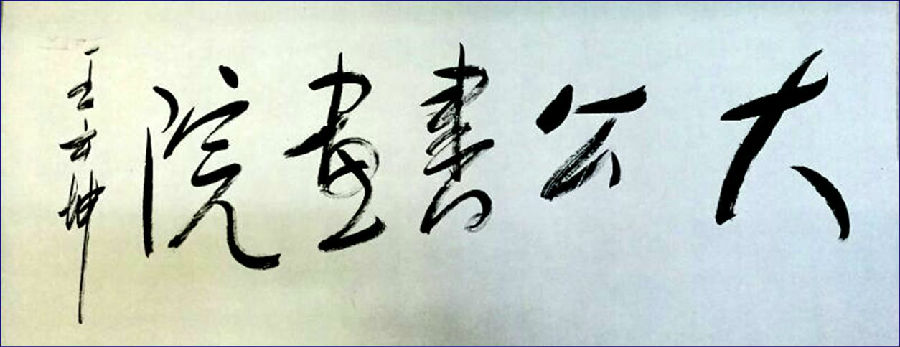 大公書畫院
王云坤